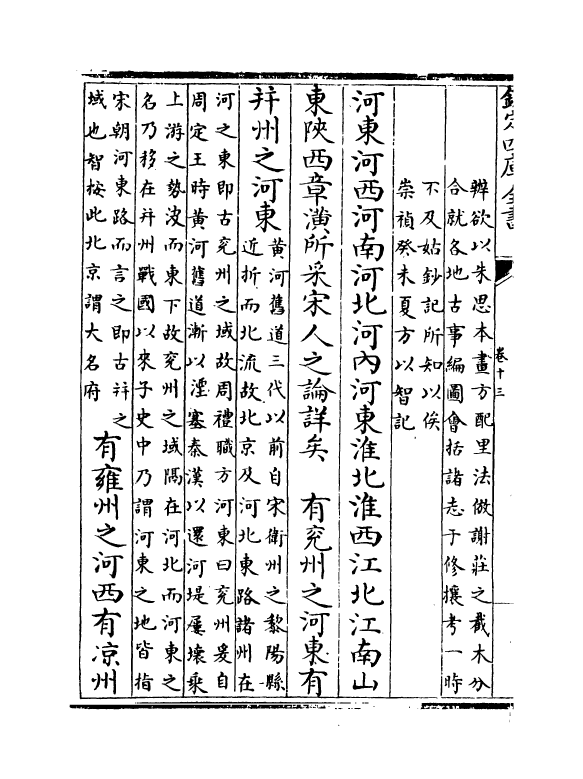 欽定四庫全書
卷十三
辦欲以朱思本畫方配里法倣謝莊之截木分
合就各地古事編圖會括諸志于修攘考一時
不及姑鈔記所知以俟
崇禎癸未夏方以智記
河東河西河南河北河內河東淮北淮西江北江南山
東陝西章潢所采宋人之論詳矣 有兖州之河東有
幷州之河東
黄河舊道三代以前自宋衛州之黎陽縣
近折而北流故北京及河北東路諸州在
河之東即古兖州之域故周禮職方河東曰兖州爰自
周定王時黄河舊道漸以湮塞秦漢以還河堤屢壞乘
上游之勢決而東下故兖州之域隅在河北而河東之
名乃移在幷州戰國以來子史中乃謂河東之地皆指
宋朝河東路而言之即古幷之
域也智按此北京謂大名府
有雍州之河西有凉州